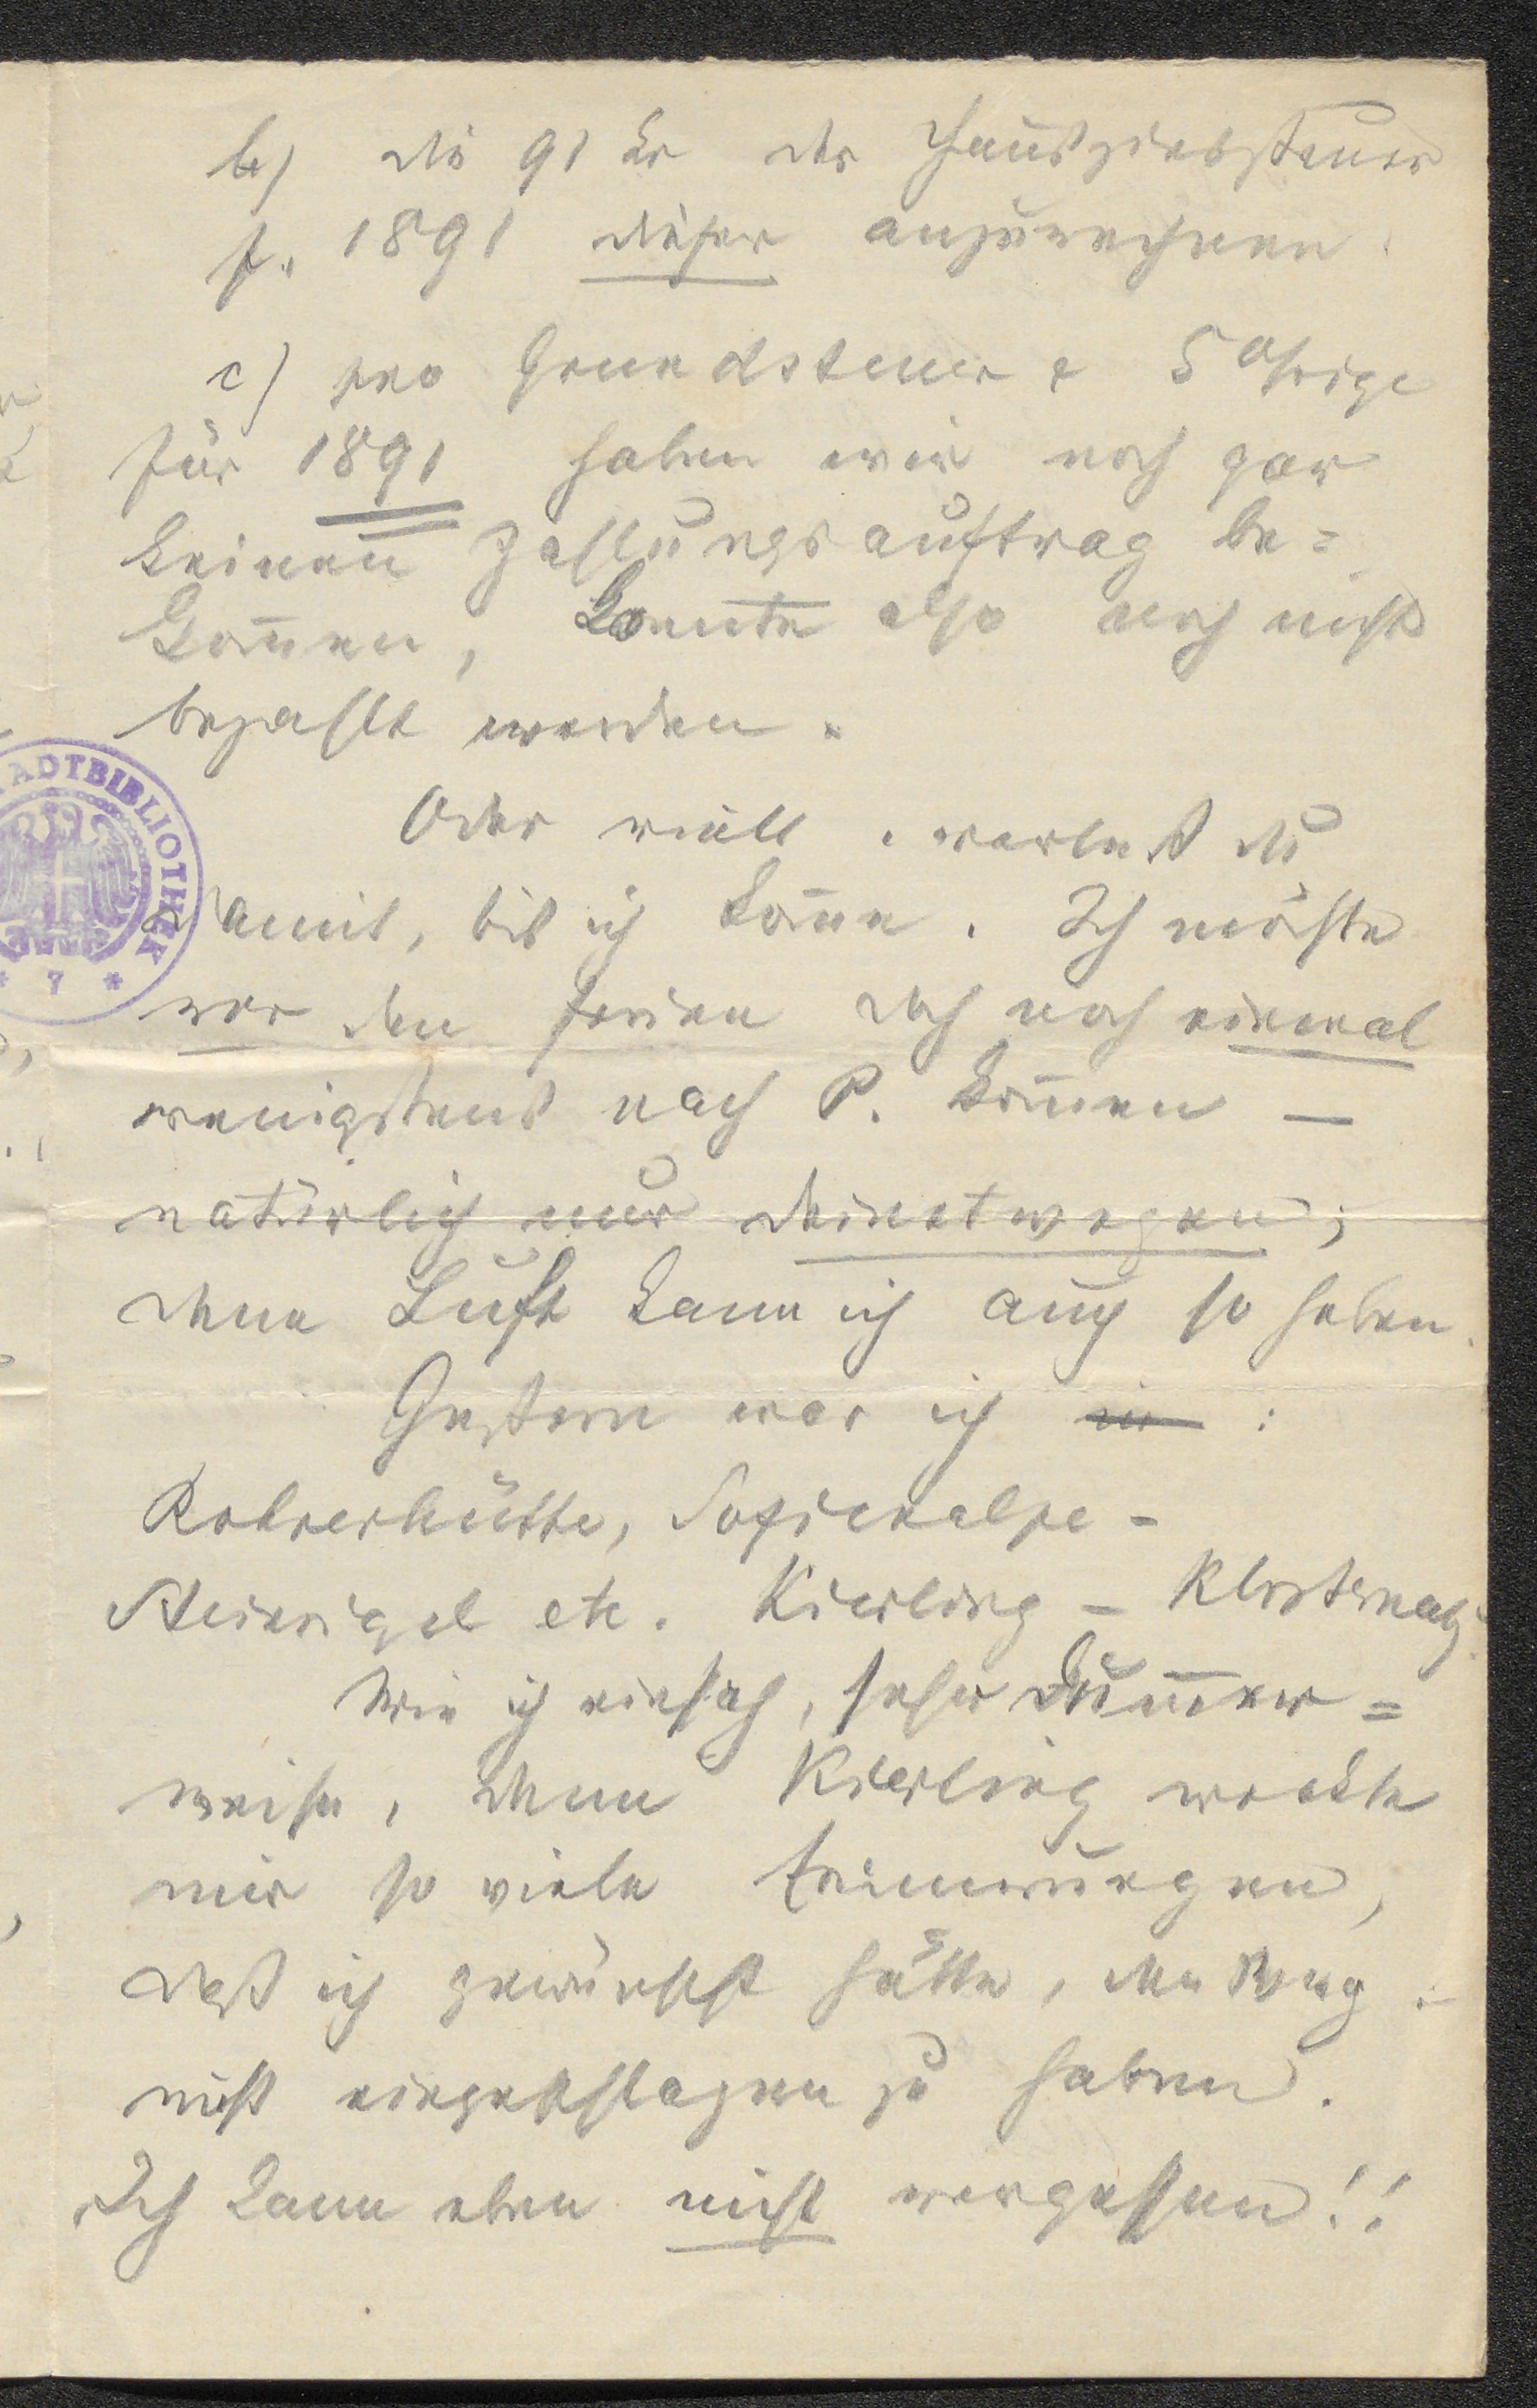 b) die 91 kr der Hauszinssteuer
f. 1891 dieser anzurechnen.
c) pro Grundsteuer &
für 1891 haben wir noch gar
keinen Zahlungsauftrag be=
kom̅en, konnte also noch nicht
bezahlt werden.
Oder viell. wartest du
damit, bis ich kom̅e. Ich möchte
vor den Ferien doch noch einmal
wenigstens nach P. kom̅en —
natürlich nur deinetwegen;
denn Luft kann ich auch so haben.
Gestern war ich in :
Rohrerhütte, Sofienalpe -
Steinriegel etc. Kierling - Klosternebg.
Wie ich einsah, sehr dum̅er=
weise, denn Kierling weckte
mir so viele Erinnerungen,
daß ich gewünscht hätte, den Weg
nicht eingeschlagen zu haben.
Ich kann eben nicht vergessen!!
STADTBIBLIOTHEK
* 7 *